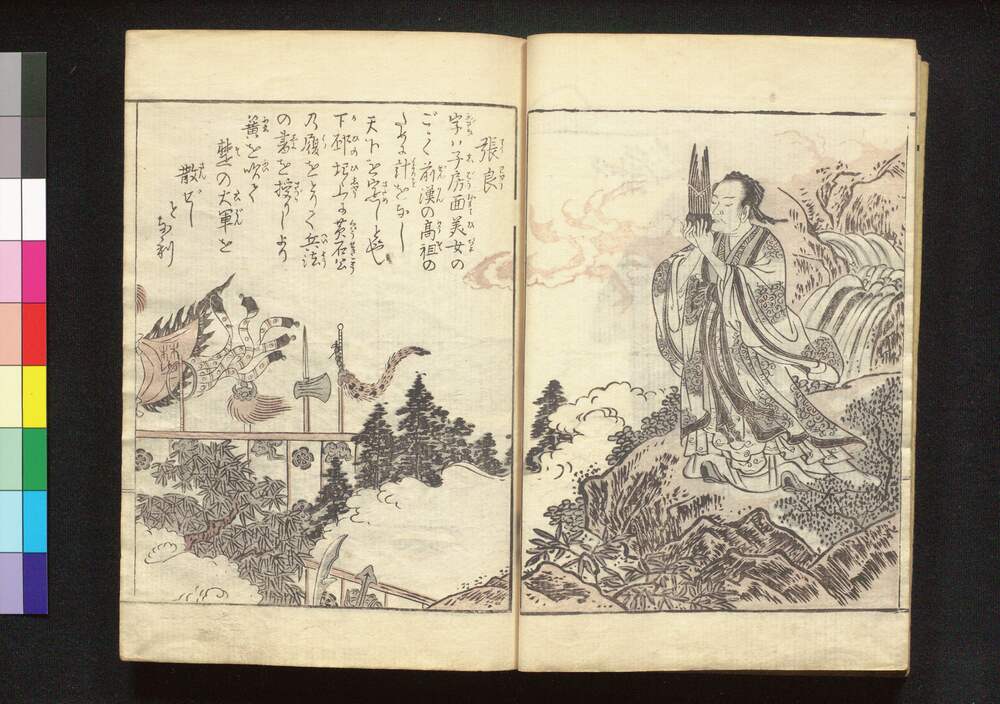 張良
字ハ子房面美女の
ごとく前漢の高祖の
ために計をなし
天下を定しむ
下邳圯上に黄石公
乃履をとりて兵法
の書を授りしより
簧を吹て
楚の大軍を
散ぜし
と